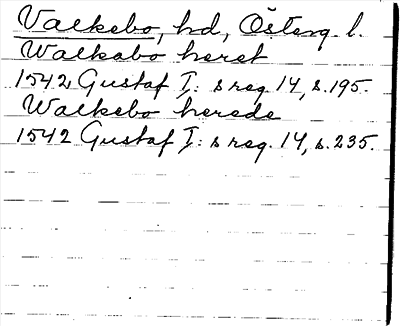 Valkebo, hd, Österg. l.
Walkabo heret
1542 Gustaf I: s reg. 14, s. 195.
Walkebo herede
1542 Gustaf I: s reg. 14, s. 235.